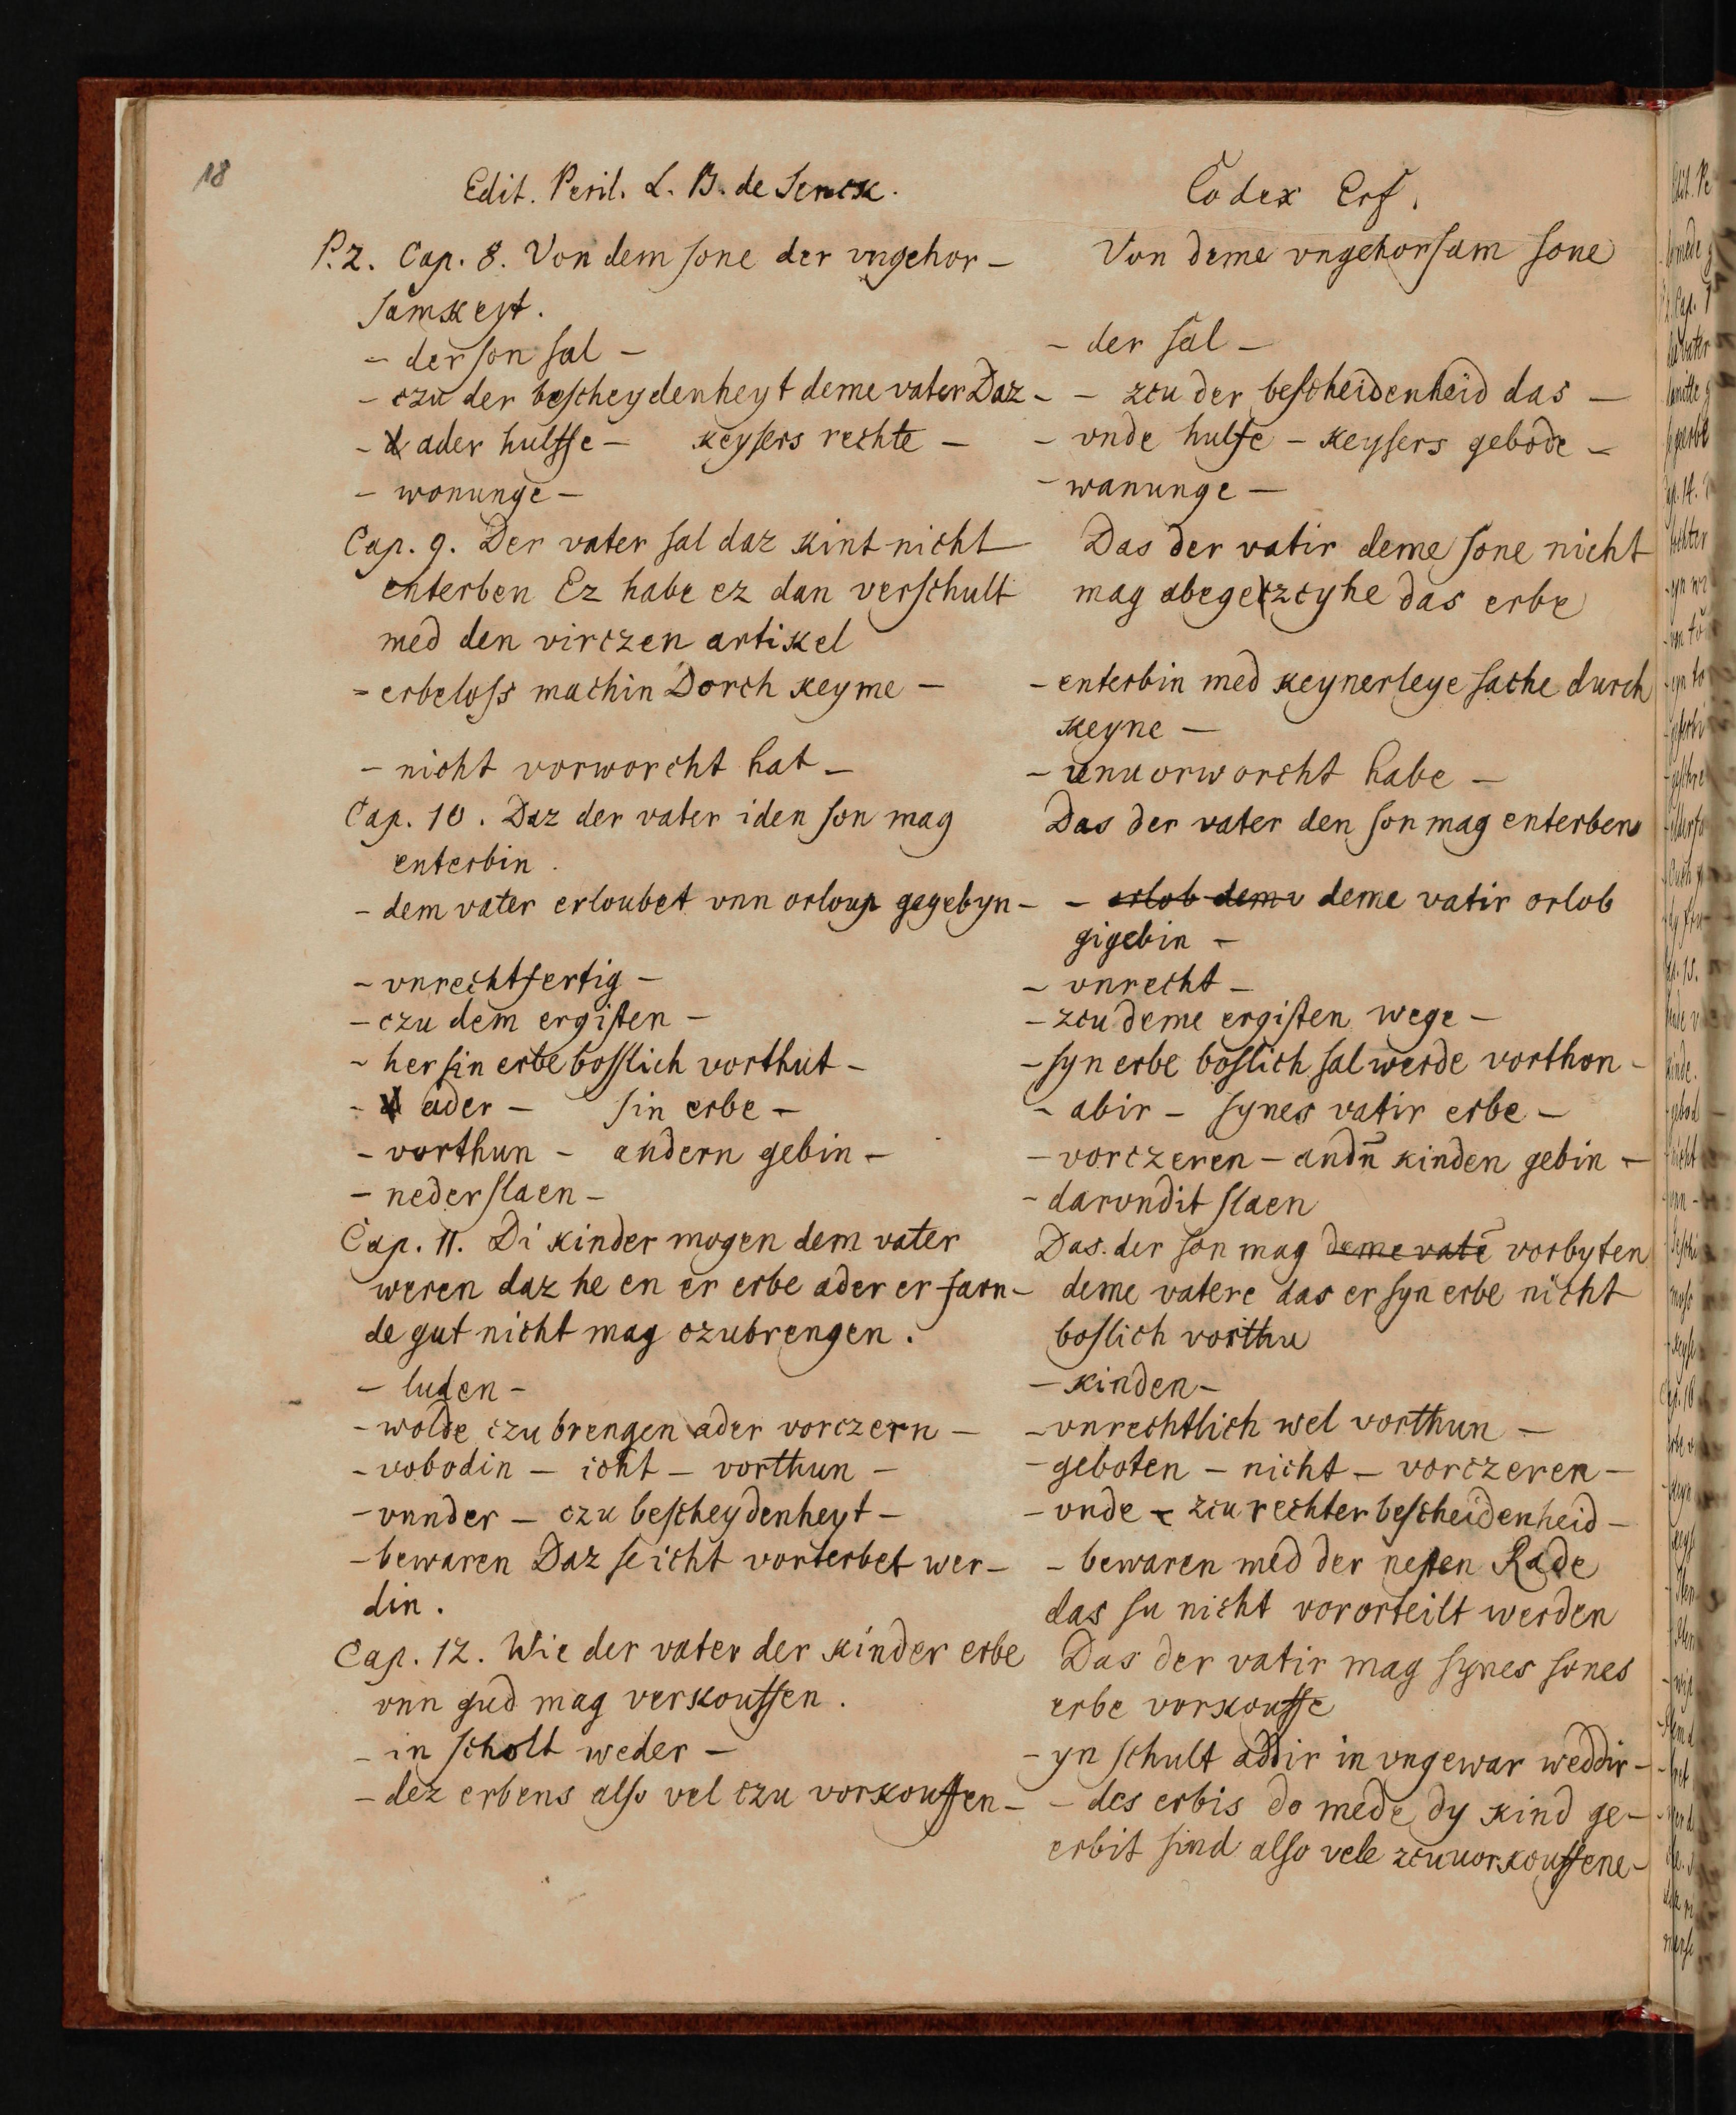 18
Edit. Peril. L. B. de Senck.
P. 2. Cap. 8. Von dem sone der vngehor-
samkeyt.
- der son sal -
- czu der bescheydenheyt deme vater Daz -
- ader hulffe - keysers rechte -
- wonunge -
Cap. 9. Der vater sal daz kint nicht
enterben Ez habe ez dan verschult
med den virczen artikel
- erbeloss machin Dorch keyme -
- nicht vorworcht hat -
Cap. 10. Daz der vater iden son mag
enterbin.
- dem vater erloubet vnn orloup gegebyn -
- vnrechtfertig -
- czu dem ergisten -
- her sin erbe bosslich vorthut -
- ader - sin erbe -
- vorthun - andern gebin -
- neder slaen -
Cap. 11. Di kinder mogen dem vater
weren daz he en er erbe ader er farn-
de gut nicht mag czubrengen.
- luden -
- wolde czu brengen ader vorczern -
- vobodin - icht - vorthun -
- vnnder - czu bescheydenheyt -
- bewaren Daz se icht vorterbet wer-
din.
Cap. 12. Wie der vater der kinder erbe
vnn gud mag verkouffen.
- in scholt weder -
- dez erbens also vel czu vorkouffen -
Codex Erf.
Von deme vngehorsam sone
- der sal -
- zcu der bescheidenheid das -
- vnde hulfe - keysers gebode -
- wanunge -
Das der vatir deme sone nicht
mag abegezcyhe das erbe
- enterbin med keynerleye sache durch
keyne -
- unuorworcht habe -
Das der vater den son mag enterben
- erlob dem v deme vatir orlob
gigebin -
- vnrecht -
- zcu deme ergisten wege -
- syn erbe boslich sal werde vorthon -
- abir - synes vatir erbe -
- vorczeren - andn̄ kinden gebin -
- darvndit slaen
Das der son mag deme vatē vorbyten
deme vatere das er syn erbe nicht
boslich vorthu
- kinden -
- vnrechtlich wel vorthun -
- geboten - nicht - vorczeren -
- vnde - zcu rechter bescheidenheid -
- bewaren med der nesten Rade
das su nicht vororteilt werden
Das der vatir mag synes sones
erbe vorkouffe
- yn schult addir in vngewar weddir -
- des erbis do mede dy kind ge-
erbit sind also vele zcuuorkouffene -